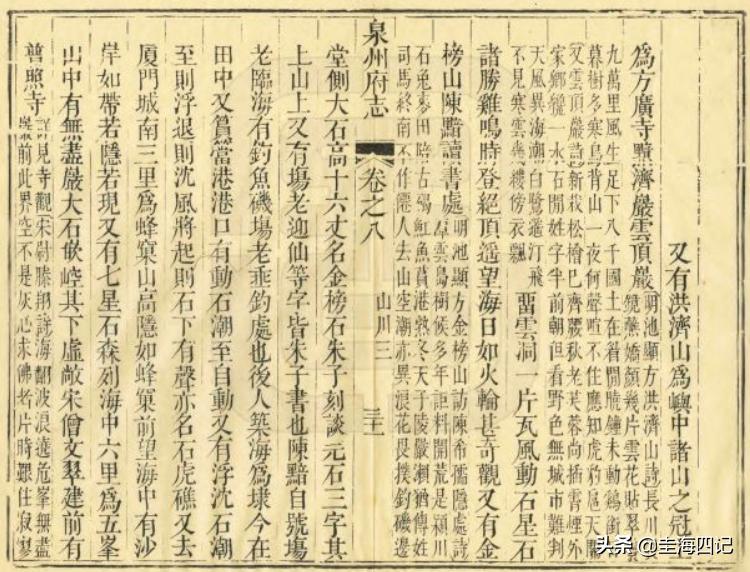 又有洪濟山爲嶼中諸山之冠上
爲方廣寺黠濟巖雲頂巖
明池顯方洪濟山詩長川
鏡燕嬌顏幾片雲花貼翠
九萬里風生足下八千國土在眉間曉鐘未動鶴銜
暮樹多寒鳥背山一夜何聲喧不住應知虎豹扈天關
又雲頂巖詩新栽松檜巳齊腰秋老芙蓉尚插霄煙外
家鄉縫一水石開姓字半前朝但看野色無城市難判
天風異海潮白鷺過汀飛
不見寒雲幾縷傍衣飄
留雲洞一片瓦風動石星石
諸勝雞鳴時登絕頂遙望海日如火輪甚奇觀又有金
榜山陳黯讀書處
明池顯方金榜山訪陳希孺隱處詩
雲鳥樹候多年詎料開荒是潁川
石兔麥田陪古碣紅魚蕡港熟冬天于陵嚴瀨猶傳姓
司馬終南不作僊人去山空潮亦異浪花長撲釣磯邊
泉州府志 卷之八 山川三 三十一
堂側大石高十六丈名金榜石朱子刻談元石三字其
上山上又有場老迎仙等字皆朱子書也陳黯自號場
老臨海有釣魚磯場老垂釣處也後人築海爲埭今在
田中又篔簹港港口有動石潮至自動又有浮沈石潮
至則浮退則沈風將起則石下有聲亦名石虎礁又去
厦門城南三里爲蜂窠山高隱如蜂窠前望海中有沙
岸如帶若隱若現又有七星石森列海中六里爲五峯
出中有無盡巖大石嵌崆其下虛敞宋僧文翠建前有
普照寺
詳見寺觀宋尉滕翔詩海翻波浪遶危峯無盡
巖前此界空不是灰心求佛者片時難住寂寥
头条 @圭海四记